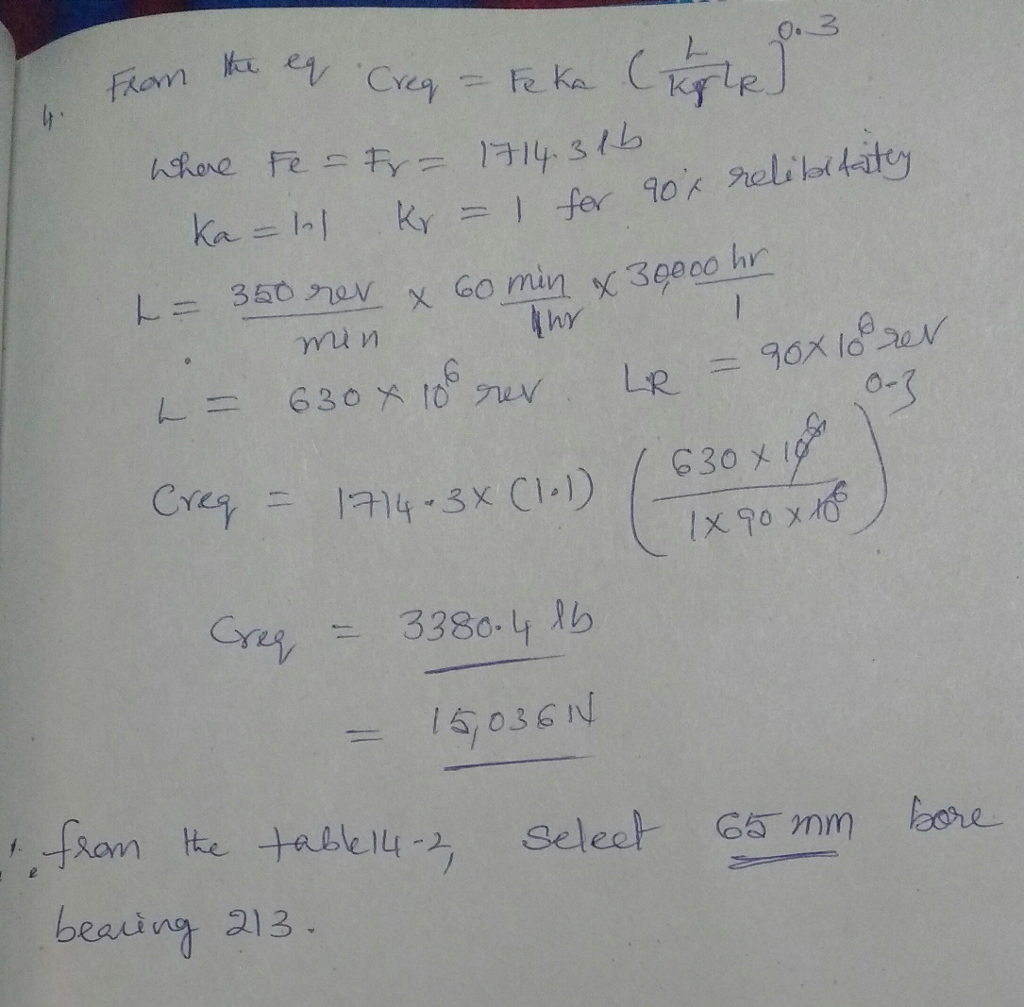 4. From the eq Creq = Fe Ka (L / Kr LR]^0.3
where Fe = Fr = 1714.3 lb
Ka = 1.1 Kr = 1 for 90%
L = 350 rev / min × 60 min / 1hr × 30,000 hr / 1
L = 630 × 10^6 rev. LR = 90 × 10^6 rev
Creq = 1714.3 × (1.1) (630 × 10^6 / 1 × 90 × 10^6)^0.3
Creq = 3380.4 lb
= 15,036 N
from the table 14-2, select 65 mm bore
bearing 213.